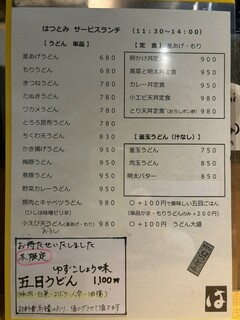 はつとみ サービスランチ (11:30~14:00)
【うどん 単品】
釜あげうどん 680
もりうどん 680
きつねうどん 780
たぬきうどん 780
ワカメうどん 780
とろろ昆布うどん 780
ちくわ天うどん 830
かき揚げうどん 950
梅豚うどん 950
煮豚うどん 950
野菜カレーうどん 950
豚肉とキャベツうどん 950
(ひしほ味噌ピリ辛)
小エビ天うどん(釜あげ・もり) 950
【定 食】釜あげ・もり
卵かけ丼定食 900
高菜と明太丼定食 950
カレー丼定食 950
小エビ天丼定食 950
とり天丼定食(おろしポン酢) 950
【釜玉うどん(汁なし)】
釜玉うどん 750
肉玉うどん 850
明太バター 850
○ +100円で美味しい五目ごはん
(単品かま・もりうどんのみ+200円)
○ +100円 うどん大盛
お待たせいたしました
ゆずこしょう味
五目うどん 1,100円
は